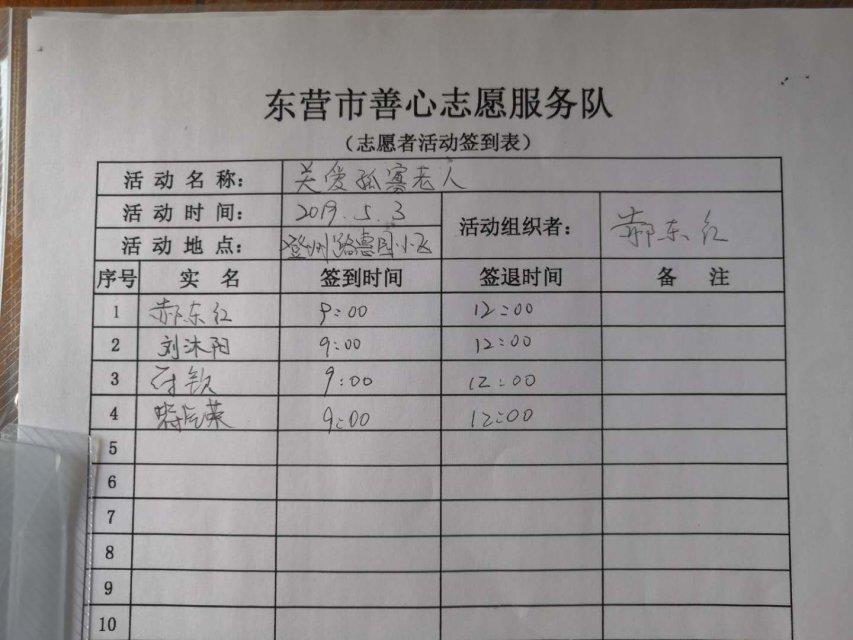 东营市善心志愿服务队
（志愿者活动签到表）
活动名称： 关爱孤寡老人
活动时间： 2019.5.3 活动组织者： 郝东红
活动地点： 登州路惠园小区
序号 实名 签到时间 签退时间 备注
1 郝东红 9:00 12:00
2 刘沐阳 9:00 12:00
3 9:00 12:00
4 9:00 12:00
5
6
7
8
9
10